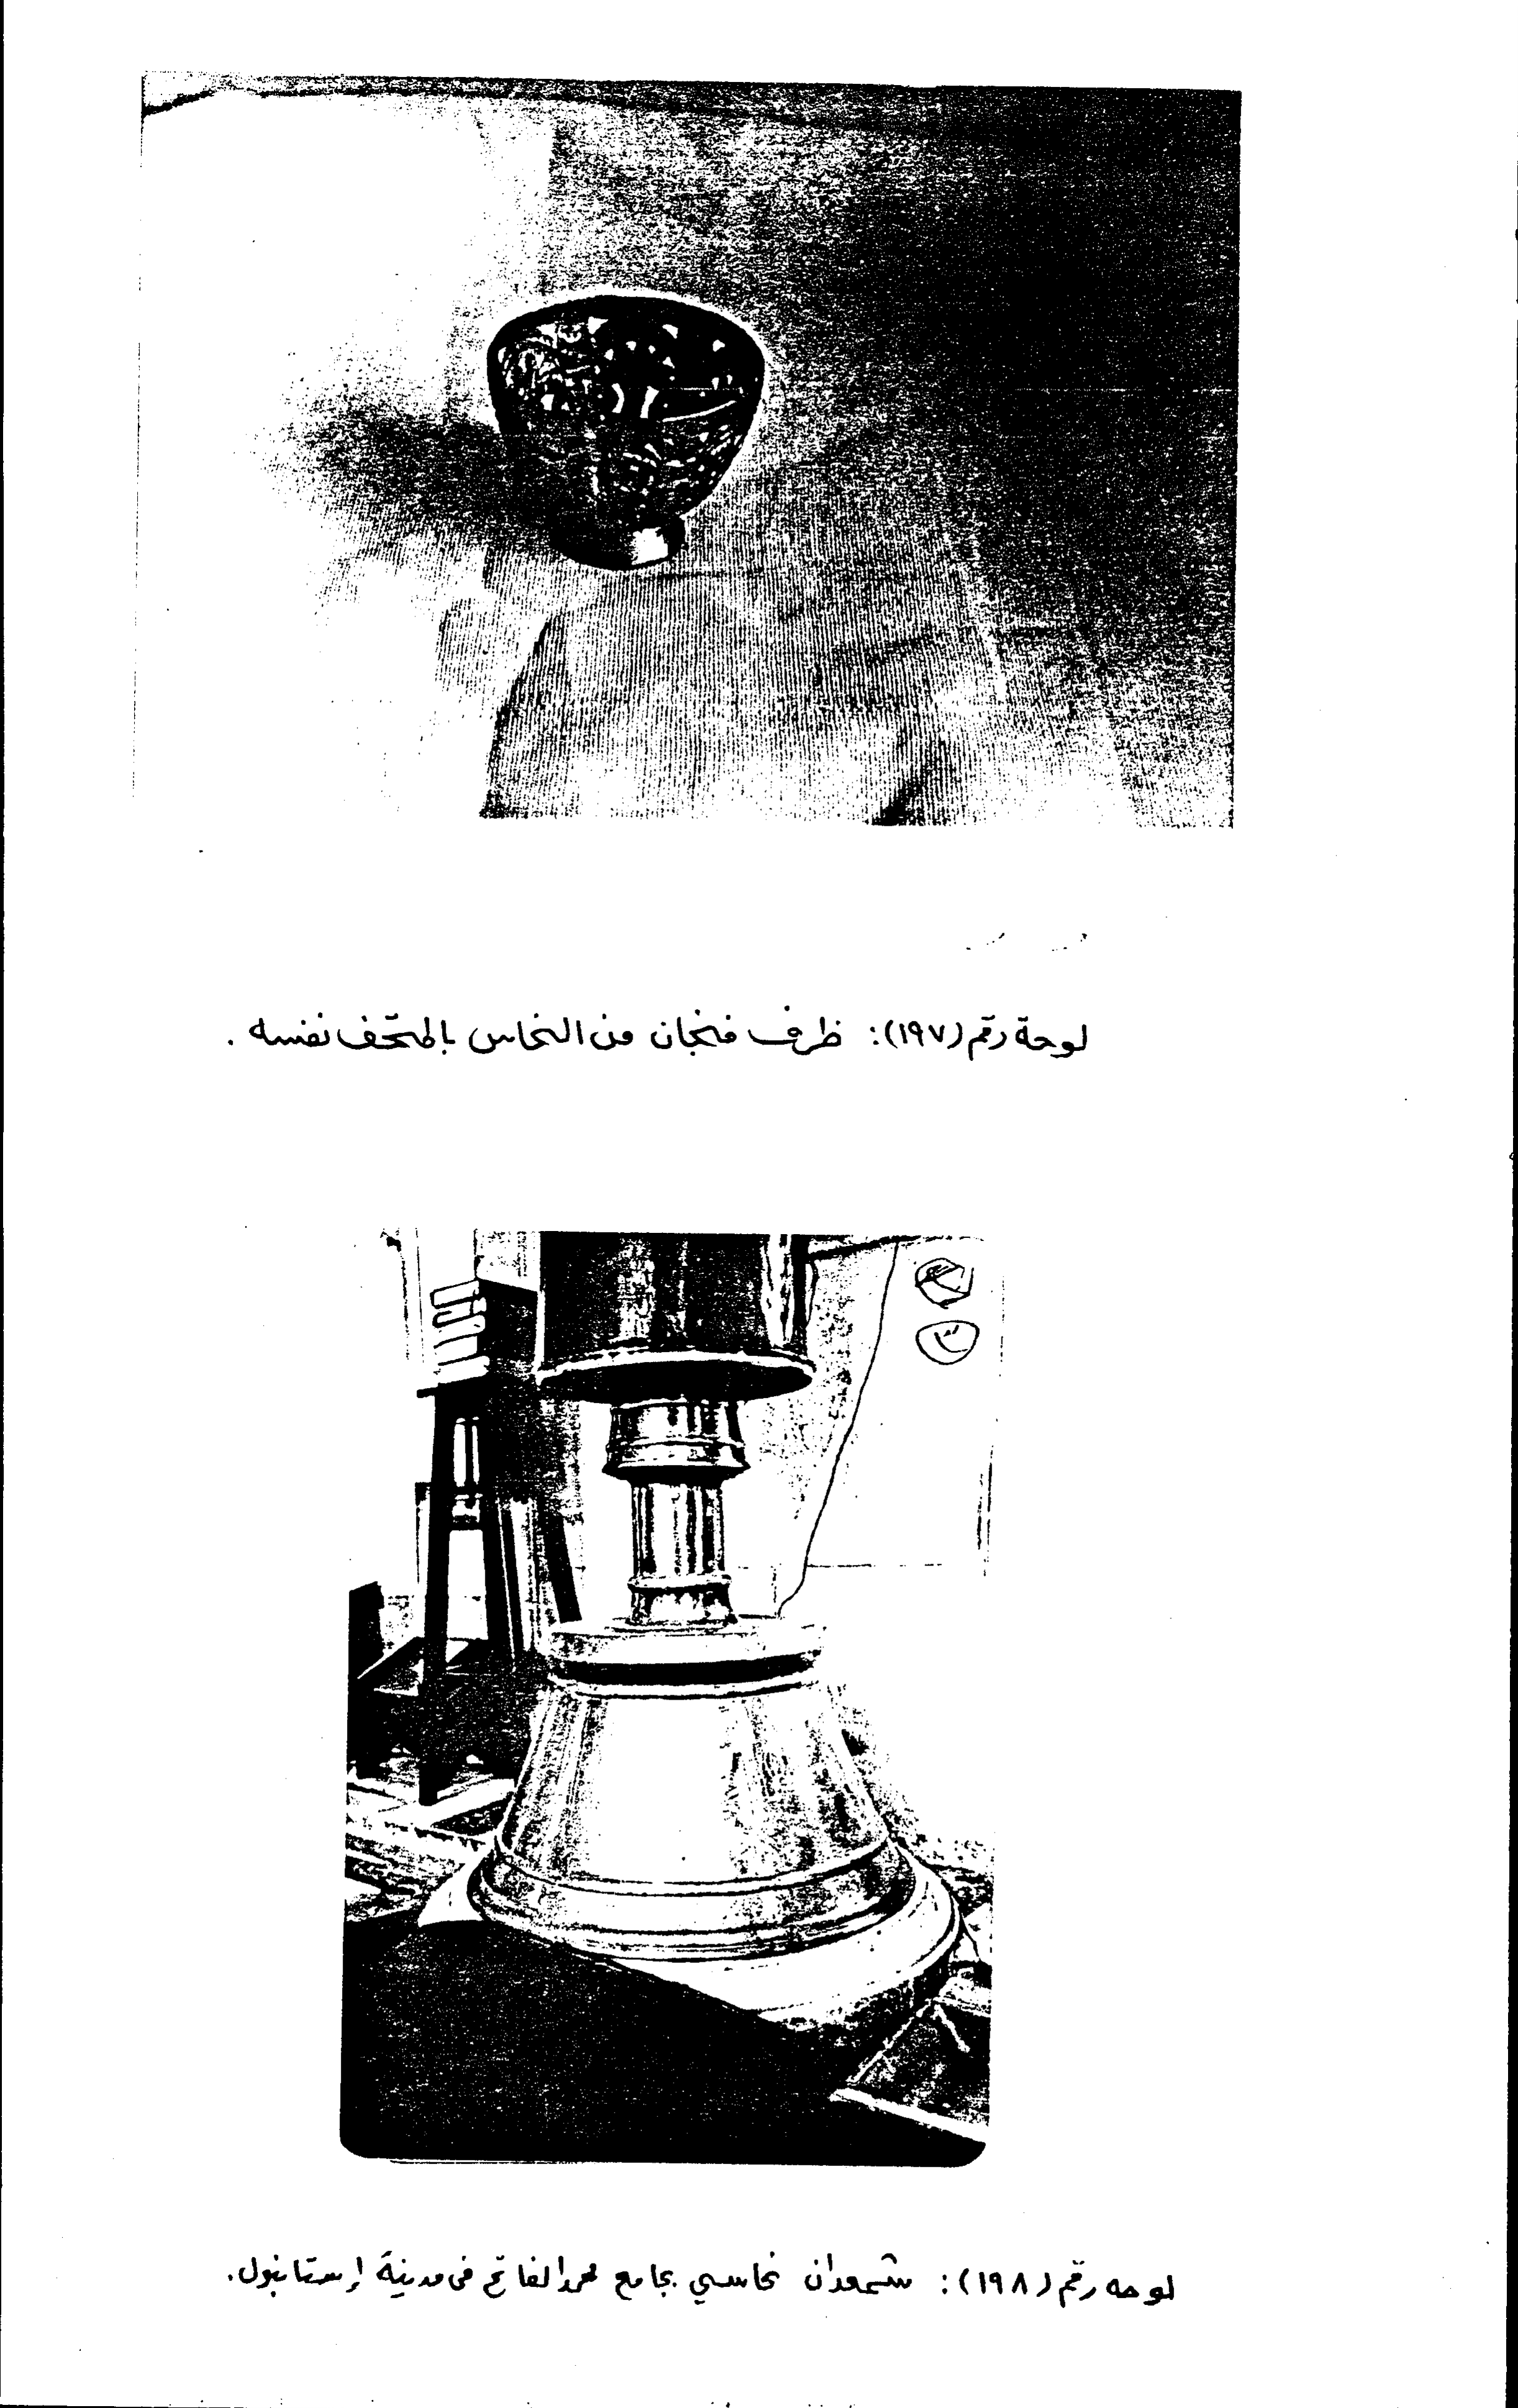 لوحة رقم (١٩٧): ظرف فنجان من النحاس بالمتحف نفسه .
لوحه رقم (١٩٨): شمعدان نحاسي بجامع محمد الفاتح في مدينة إستانبول.